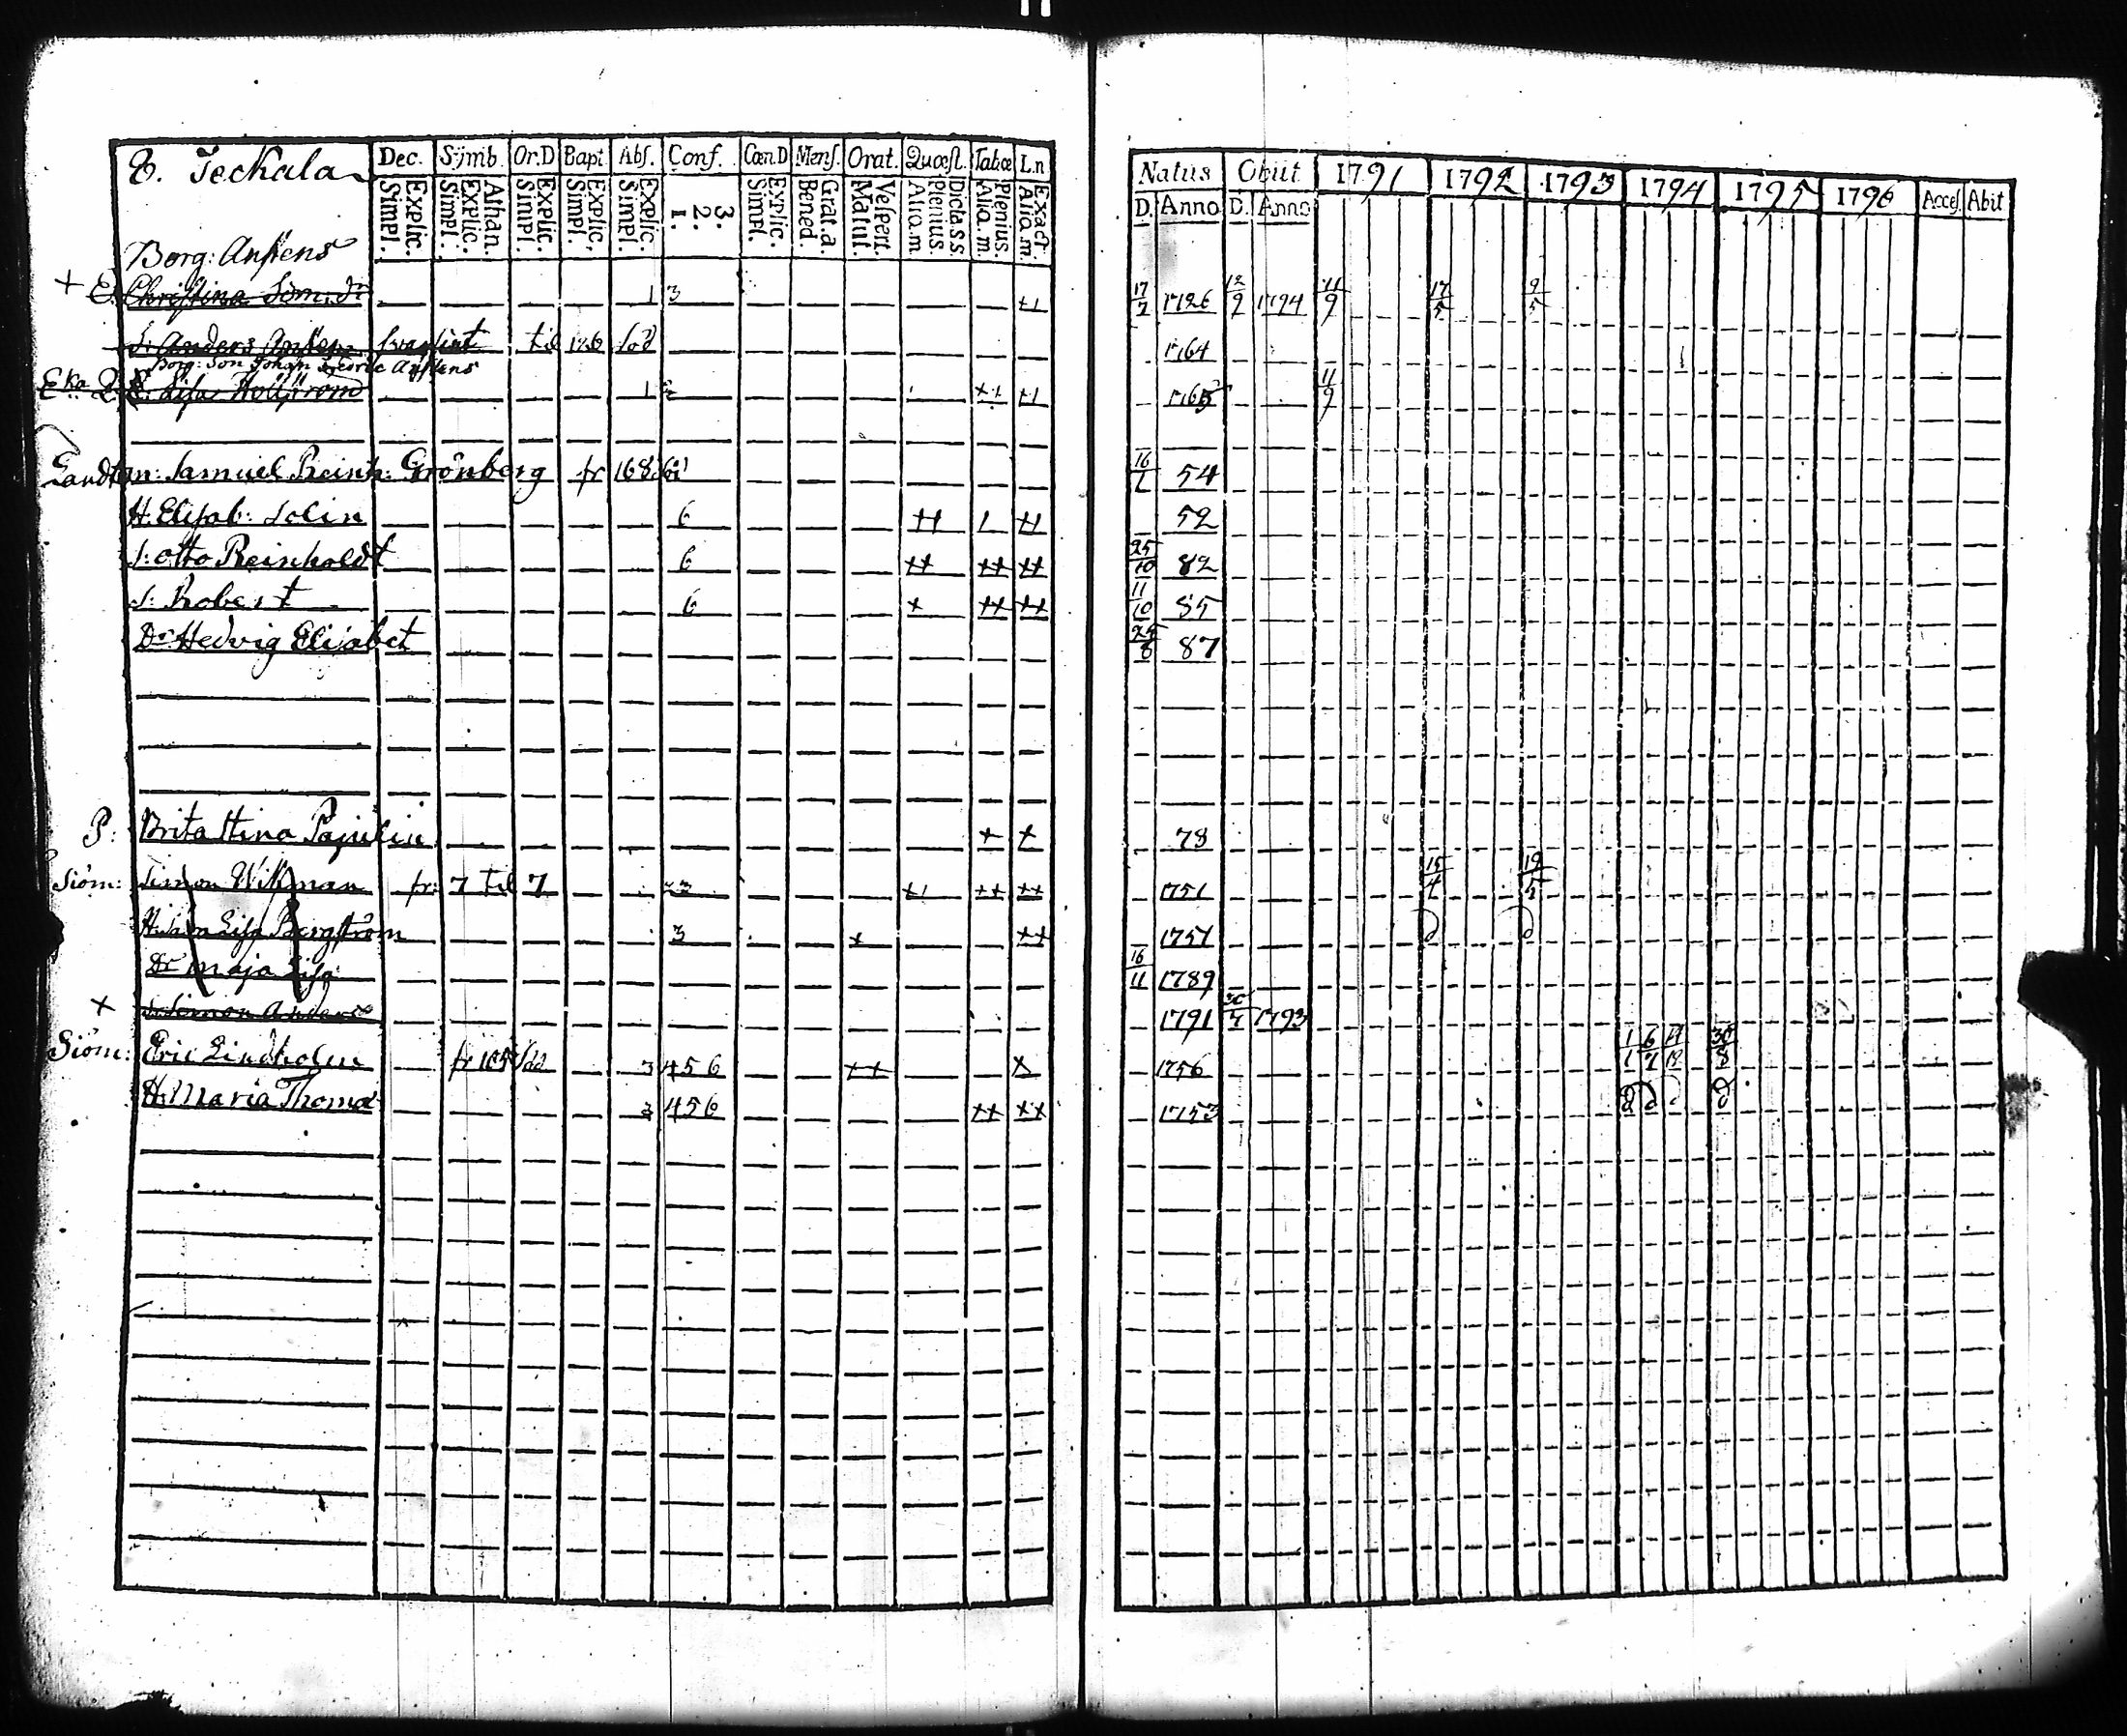 E. Teckala Dec. Sijmb. Or.D Bapt. Abs. Conf. Cœn.D Mens. Orat. Quæst. Tabœ L.n Natus Obiit 1791 1792 1793 1794 1795 1796 Acces. Abit
Explic. Simpl. Athan. Explic. Simpl. Explic. Simpl. Explic. Simpl. Explic. Simpl. 3. 2. 1. Explic. Simpl. Grat.a. Bened. Vespert. Matut. Dicta.s.s. Plenius. Alia.m Plenius. Alia.m. Exact. Alia.m. D. Anno D. Anno
Borg:
+ E. Christina Sim: dr 1 3 +1 17/7 1726 12/9 1794 11/9 17/5 9/5
S: Anders til 126 sod 1764
Borg: Son Johan
Eka E: Lisa 1 ++ +1 11/9
Landtm: Samuel Reinh: Grönberg fr 168 54
H. Elisab: Solin 6 ++ 1 ++ 52
S: Otto Reinholdt 6 ++ ++ ++ 25/10 82
S: Robert 6 + ++ ++ 11/10 85
Dr Hedvig Elisabet 25/8 87
P: Brita Stina Pajulin + + 78
Siöm: Simon Wikman fr: 7 til 7 23 +1 ++ ++ 1751 15/4 19/5
H. Lisa Bergström 3 + ++ 1757
Dr Maja Lisa 16/11 1789
+ S. Simon Anders 1791 1793
Siöm: Eric Lindholm fr 3 456 ++ + 1756 1/1 6/7 30/8
H: Maria Thoma 3 456 ++ ++ 1753